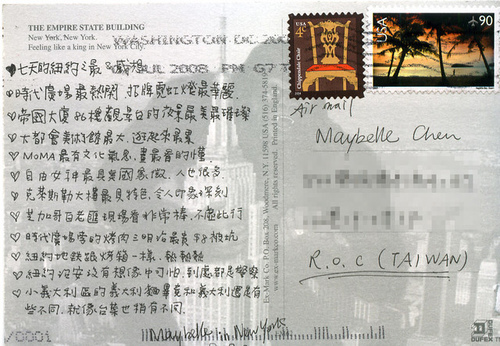 THE EMPIRE STATE BUILDING
New York, New York.
Feeling like a king in New York City.
WASHINGTON DC 200
JUL 2008 PM 07 T
♥七天的紐約之最&感想
♡時代廣場最熱鬧,招牌霓虹燈最華麗
♡帝國大廈86樓觀景台的夜景最美最璀璨
♡大都會美術館最大,逛起來最累
♡MoMA最有文化氣息,畫最看的懂
♡自由女神最具美國意象,人也很多
♡克萊斯勒大樓最具特色,令人印象深刻
♡芝加哥百老匯現場看非常棒,不虛此行
♡時代廣場旁的烤肉三明治最貴 $8被坑
♡紐約地鐵跟烤箱一樣,熱熱熱
♡紐約治安沒有想像中可怕,到處都是警察
♡小義大利區的義大利麵畢竟和義大利還是有
些不同,就像台菜也稍有不同.
Maybelle in New York
/0001
Ex-Mark Co. P.O. Box 206, Woodmere, N.Y. 11598 USA (516) 374-5811
www.ex-markco.com All rights reserved. Printed in England.
USA
4¢
Chippendale Chair
USA
90
Air mail
Maybelle Chen
R.O.C (TAIWAN)
DUFEX